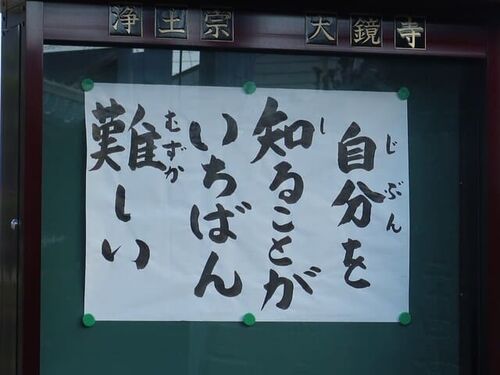 浄土宗 大鏡寺
自分を
じぶん
知ることが
し
いちばん
難しい
むずか